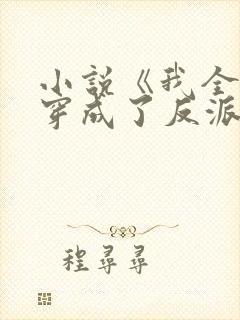 小说《我全
穿成了反派
程寻寻